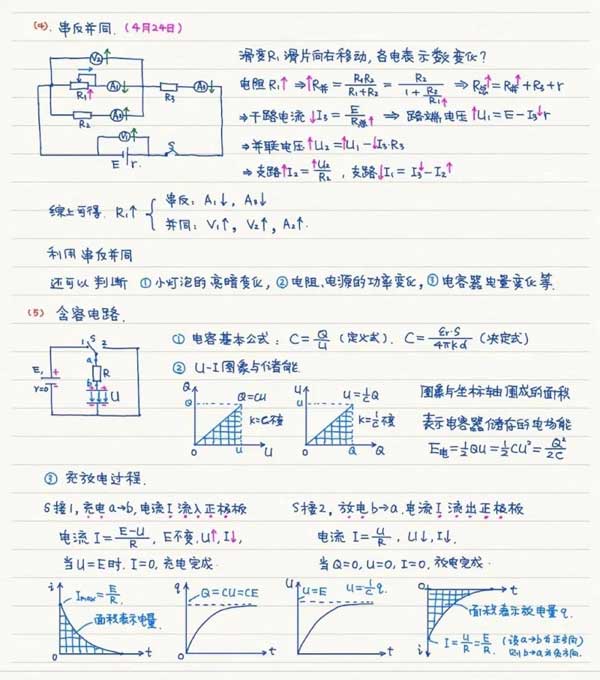 (4). 串反并同. (4月24日)
滑变R₁滑片向右移动, 各电表示数变化?
V₂↑
R₁↑ A₁↓ R₃ A₃↓
R₂ A₂↑
V₁↑
E r. S
电阻R₁↑ ⇒ ↑R并 = R₁R₂/(R₁+R₂) = R₂/(1+R₂/R₁↑) ⇒ R总↑ = R并↑ + R₃ + r
⇒ 干路电流 ↓I₃ = E/R总↑ ⇒ 路端电压 ↑U₁ = E - I₃↓r
⇒ 并联电压 ↑U₂ = ↑U₁ - ↓I₃·R₃
⇒ 支路↑I₂ = ↑U₂/R₂, 支路↓I₁ = I₃↓ - I₂↑
综上可得. R₁↑ { 串反: A₁↓, A₃↓
并同: V₁↑, V₂↑, A₂↑.
利用串反并同
还可以判断 ①小灯泡的亮暗变化, ②电阻、电源的功率变化, ③电容器电量变化等.
(5) 含容电路.
1 S 2
a
E, + R
r=0 - b
+ + U
- -
① 电容基本公式: C = Q/U (定义式). C = εr·S/4πkd (决定式)
② U-I图象与储能
Q Q=CU k=C不变 Q 0 U U
U U=1/C Q k=1/C不变 U 0 Q Q
图象与坐标轴围成的面积
表示电容器储存的电场能
E电 = ½QU = ½CU² = Q²/2C
③ 充放电过程.
S接1, 充电a→b, 电流I流入正极板
电流 I = (E-U)/R, E不变, U↑, I↓,
当U=E时. I=0, 充电完成.
S接2, 放电b→a, 电流I流出正极板
电流 I = U/R, U↓, I↓.
当Q=0, U=0, I=0. 放电完成.
i Imax = E/R 面积表示电量. 0 t
q Q=CU=CE 0 t
U U=E U=1/C q. 0 t
0 t 面积表示放电量q. i I = U/R = E/R. (设a→b为正方向)
则b→a为负方向.